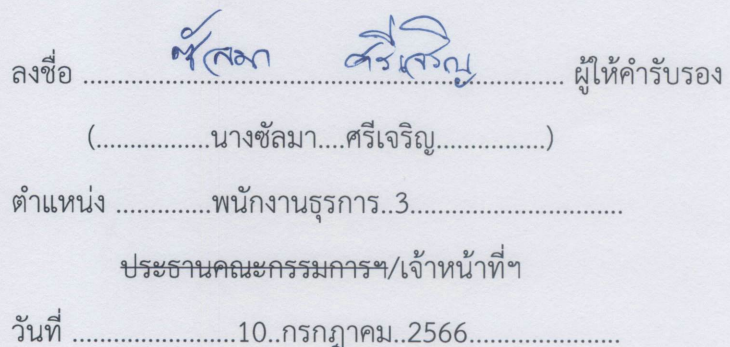 ลงชื่อ ........ซัลมา ศรีเจริญ........ ผู้ให้คำรับรอง
(................นางซัลมา....ศรีเจริญ................)
ตำแหน่ง ..............พนักงานธุรการ..3...............................
ประธานคณะกรรมการฯ/เจ้าหน้าที่ฯ
วันที่ ........................10..กรกฎาคม..2566......................